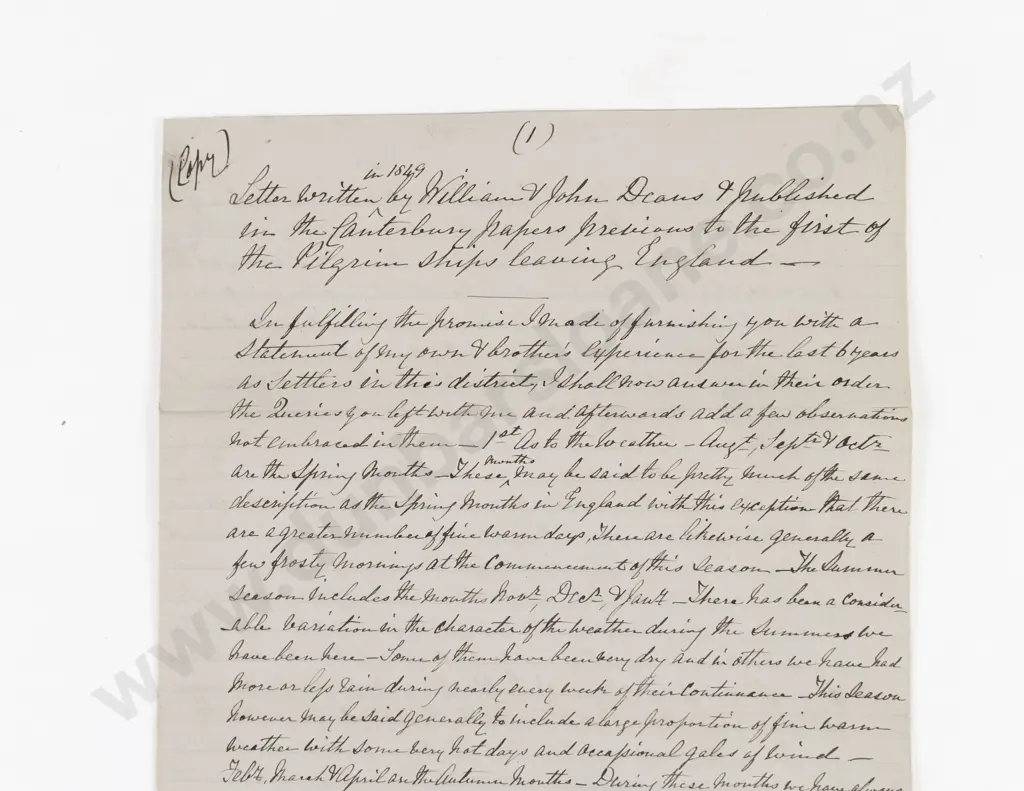 (Copy)
(1)
in 1849
Letter written ^ by William & John Deans & published
in the Canterbury papers previous to the first of
the Pilgrim ships leaving England —
In fulfilling the promise I made of furnishing you with a
statement of my own & brother's experience for the last 6 years
as settlers in this district, I shall now answer in their order
the Queries you left with me and afterwards add a few observations
not embraced in them — 1st As to the Weather — Augt, Septr & Octr
are the Spring Months — These ^ months may be said to be pretty much of the same
description as the Spring Months in England with this exception that there
are a greater number of fine warm days, There are likewise generally a
few frosty mornings at the Commencement of this Season — The Summer
Season includes the months Novr, Decr, & Jany — There has been a consider-
able variation in the character of the weather during the Summers we
have been here — Some of them have been very dry and in others we have had
more or less rain during nearly every week of their continuance — This Season
however may be said generally to include a large proportion of fine warm
weather with some very hot days and occasional gales of wind —
Feby, March & April are the Autumn Months — During these months we have always
www.dunbarsloane.co.nz